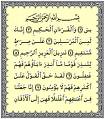 بِسْمِ اللَّهِ الرَّحْمَٰنِ الرَّحِيمِ
يسٓ ۝ وَالْقُرْءَانِ الْحَكِيمِ ۝ إِنَّكَ
لَمِنَ الْمُرْسَلِينَ ۝ عَلَىٰ صِرَٰطٍ
مُّسْتَقِيمٍ ۝ تَنزِيلَ الْعَزِيزِ الرَّحِيمِ ۝
لِتُنذِرَ قَوْمًا مَّآ أُنذِرَ ءَابَآؤُهُمْ فَهُمْ
غَٰفِلُونَ ۝ لَقَدْ حَقَّ الْقَوْلُ عَلَىٰٓ
أَكْثَرِهِمْ فَهُمْ لَا يُؤْمِنُونَ ۝ إِنَّا جَعَلْنَا
فِىٓ أَعْنَٰقِهِمْ أَغْلَٰلًا فَهِىَ إِلَى الْأَذْقَانِ